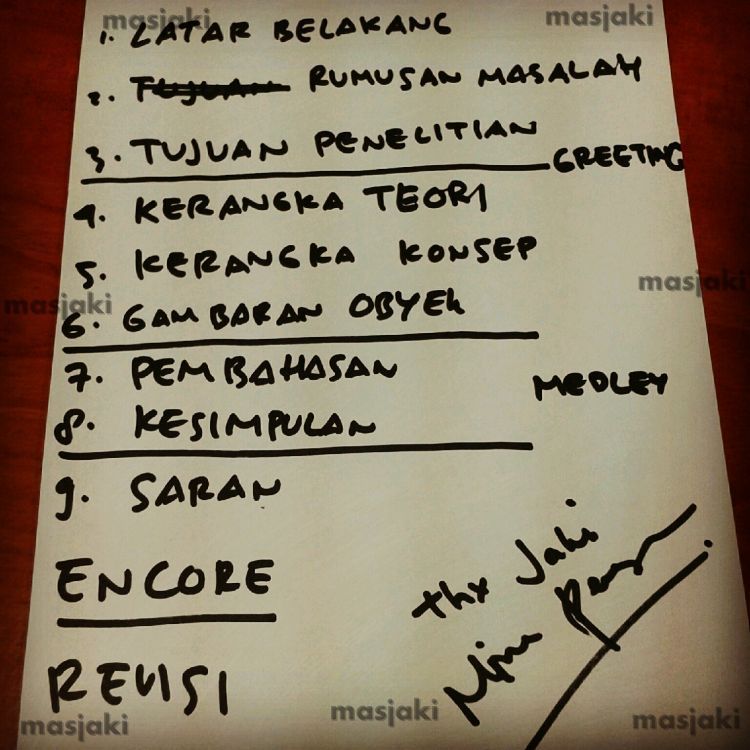 masjaki masjaki
1. LATAR BELAKANG
2. TUJUAN RUMUSAN MASALAH
3. TUJUAN PENELITIAN
GREETING
4. KERANGKA TEORI
5. KERANGKA KONSEP
masjaki
masjaki
6. GAMBARAN OBYEK
7. PEMBAHASAN
MEDLEY
8. KESIMPULAN
9. SARAN
ENCORE
thx Jaki
REVISI
masjaki masjaki masjaki